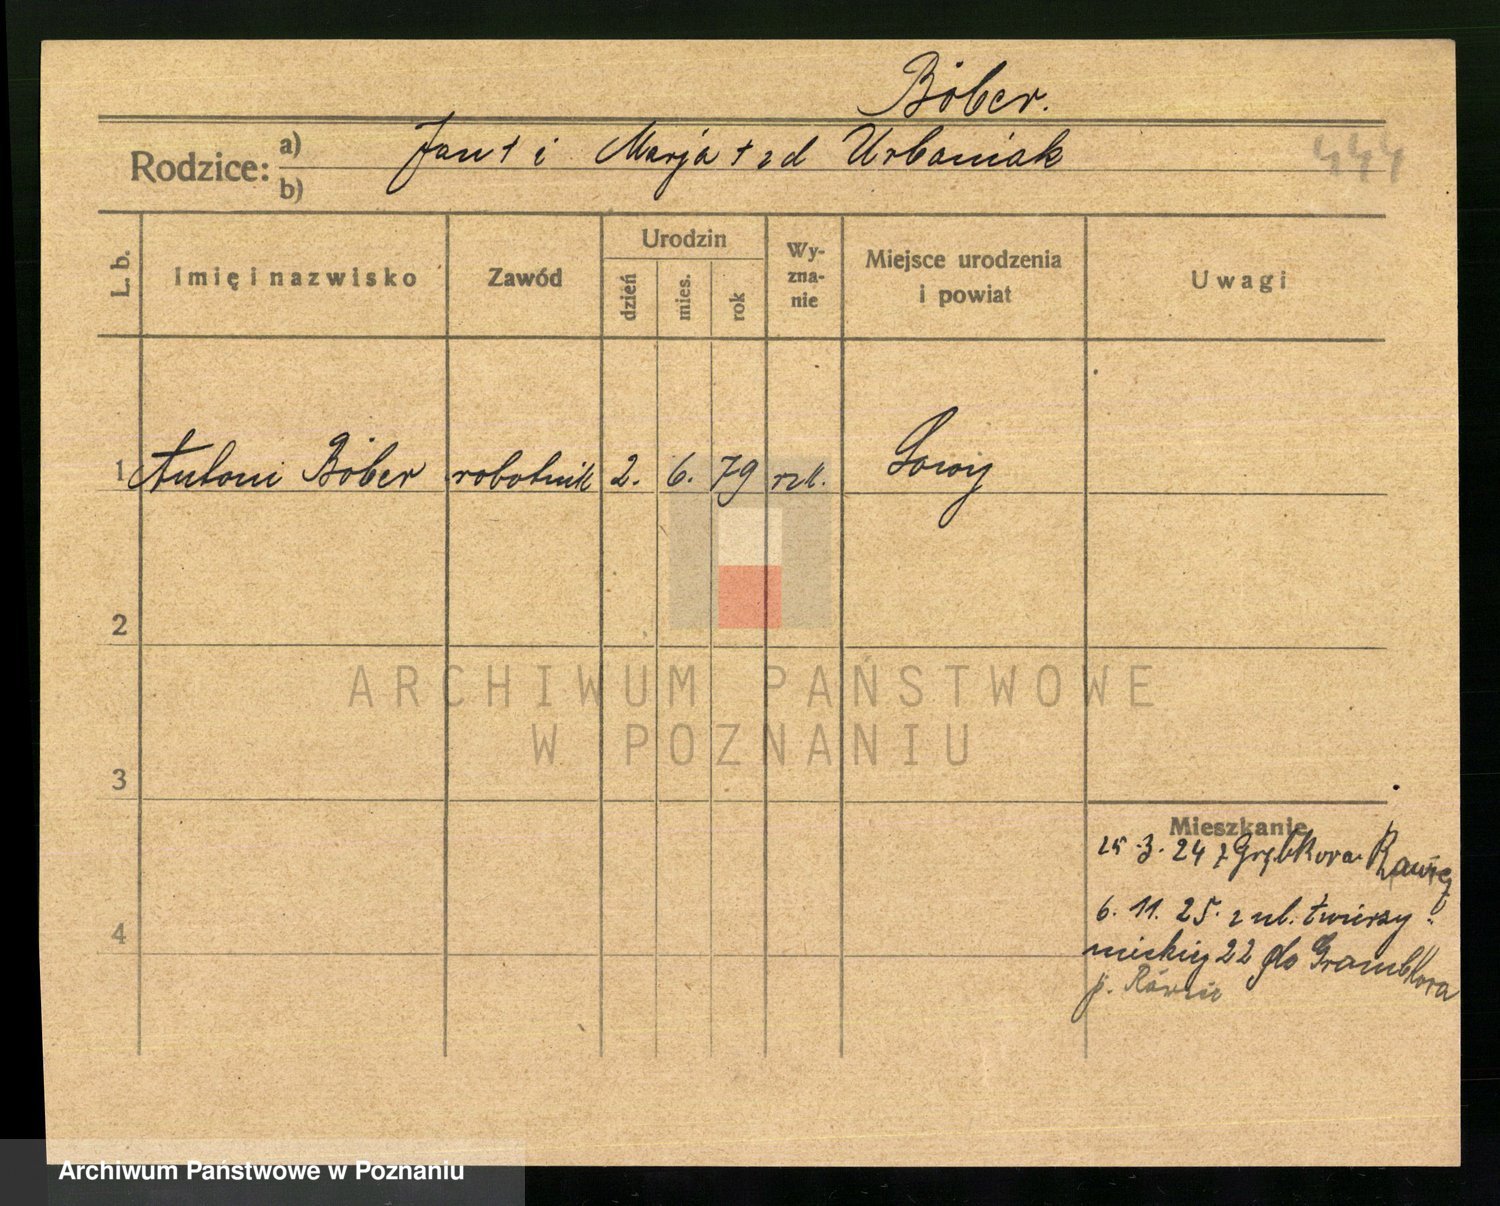 Bober.
Rodzice: a) b) Jan † i Marja † z d Urbaniak
444
L. b.
Imię i nazwisko
Zawód
Urodzin
dzień
mies.
rok
Wy-
zna-
nie
Miejsce urodzenia
i powiat
Uwagi
1 Antoni Bober robotnik 2. 6. 79 rzk. Sowy
2
3
4
Mieszkanie
25.3.24 z Grąbkowa Rawicz
6. 11. 25. z ul.
22 do
p. Rawicz
ARCHIWUM PAŃSTWOWE
W POZNANIU
Archiwum Państwowe w Poznaniu